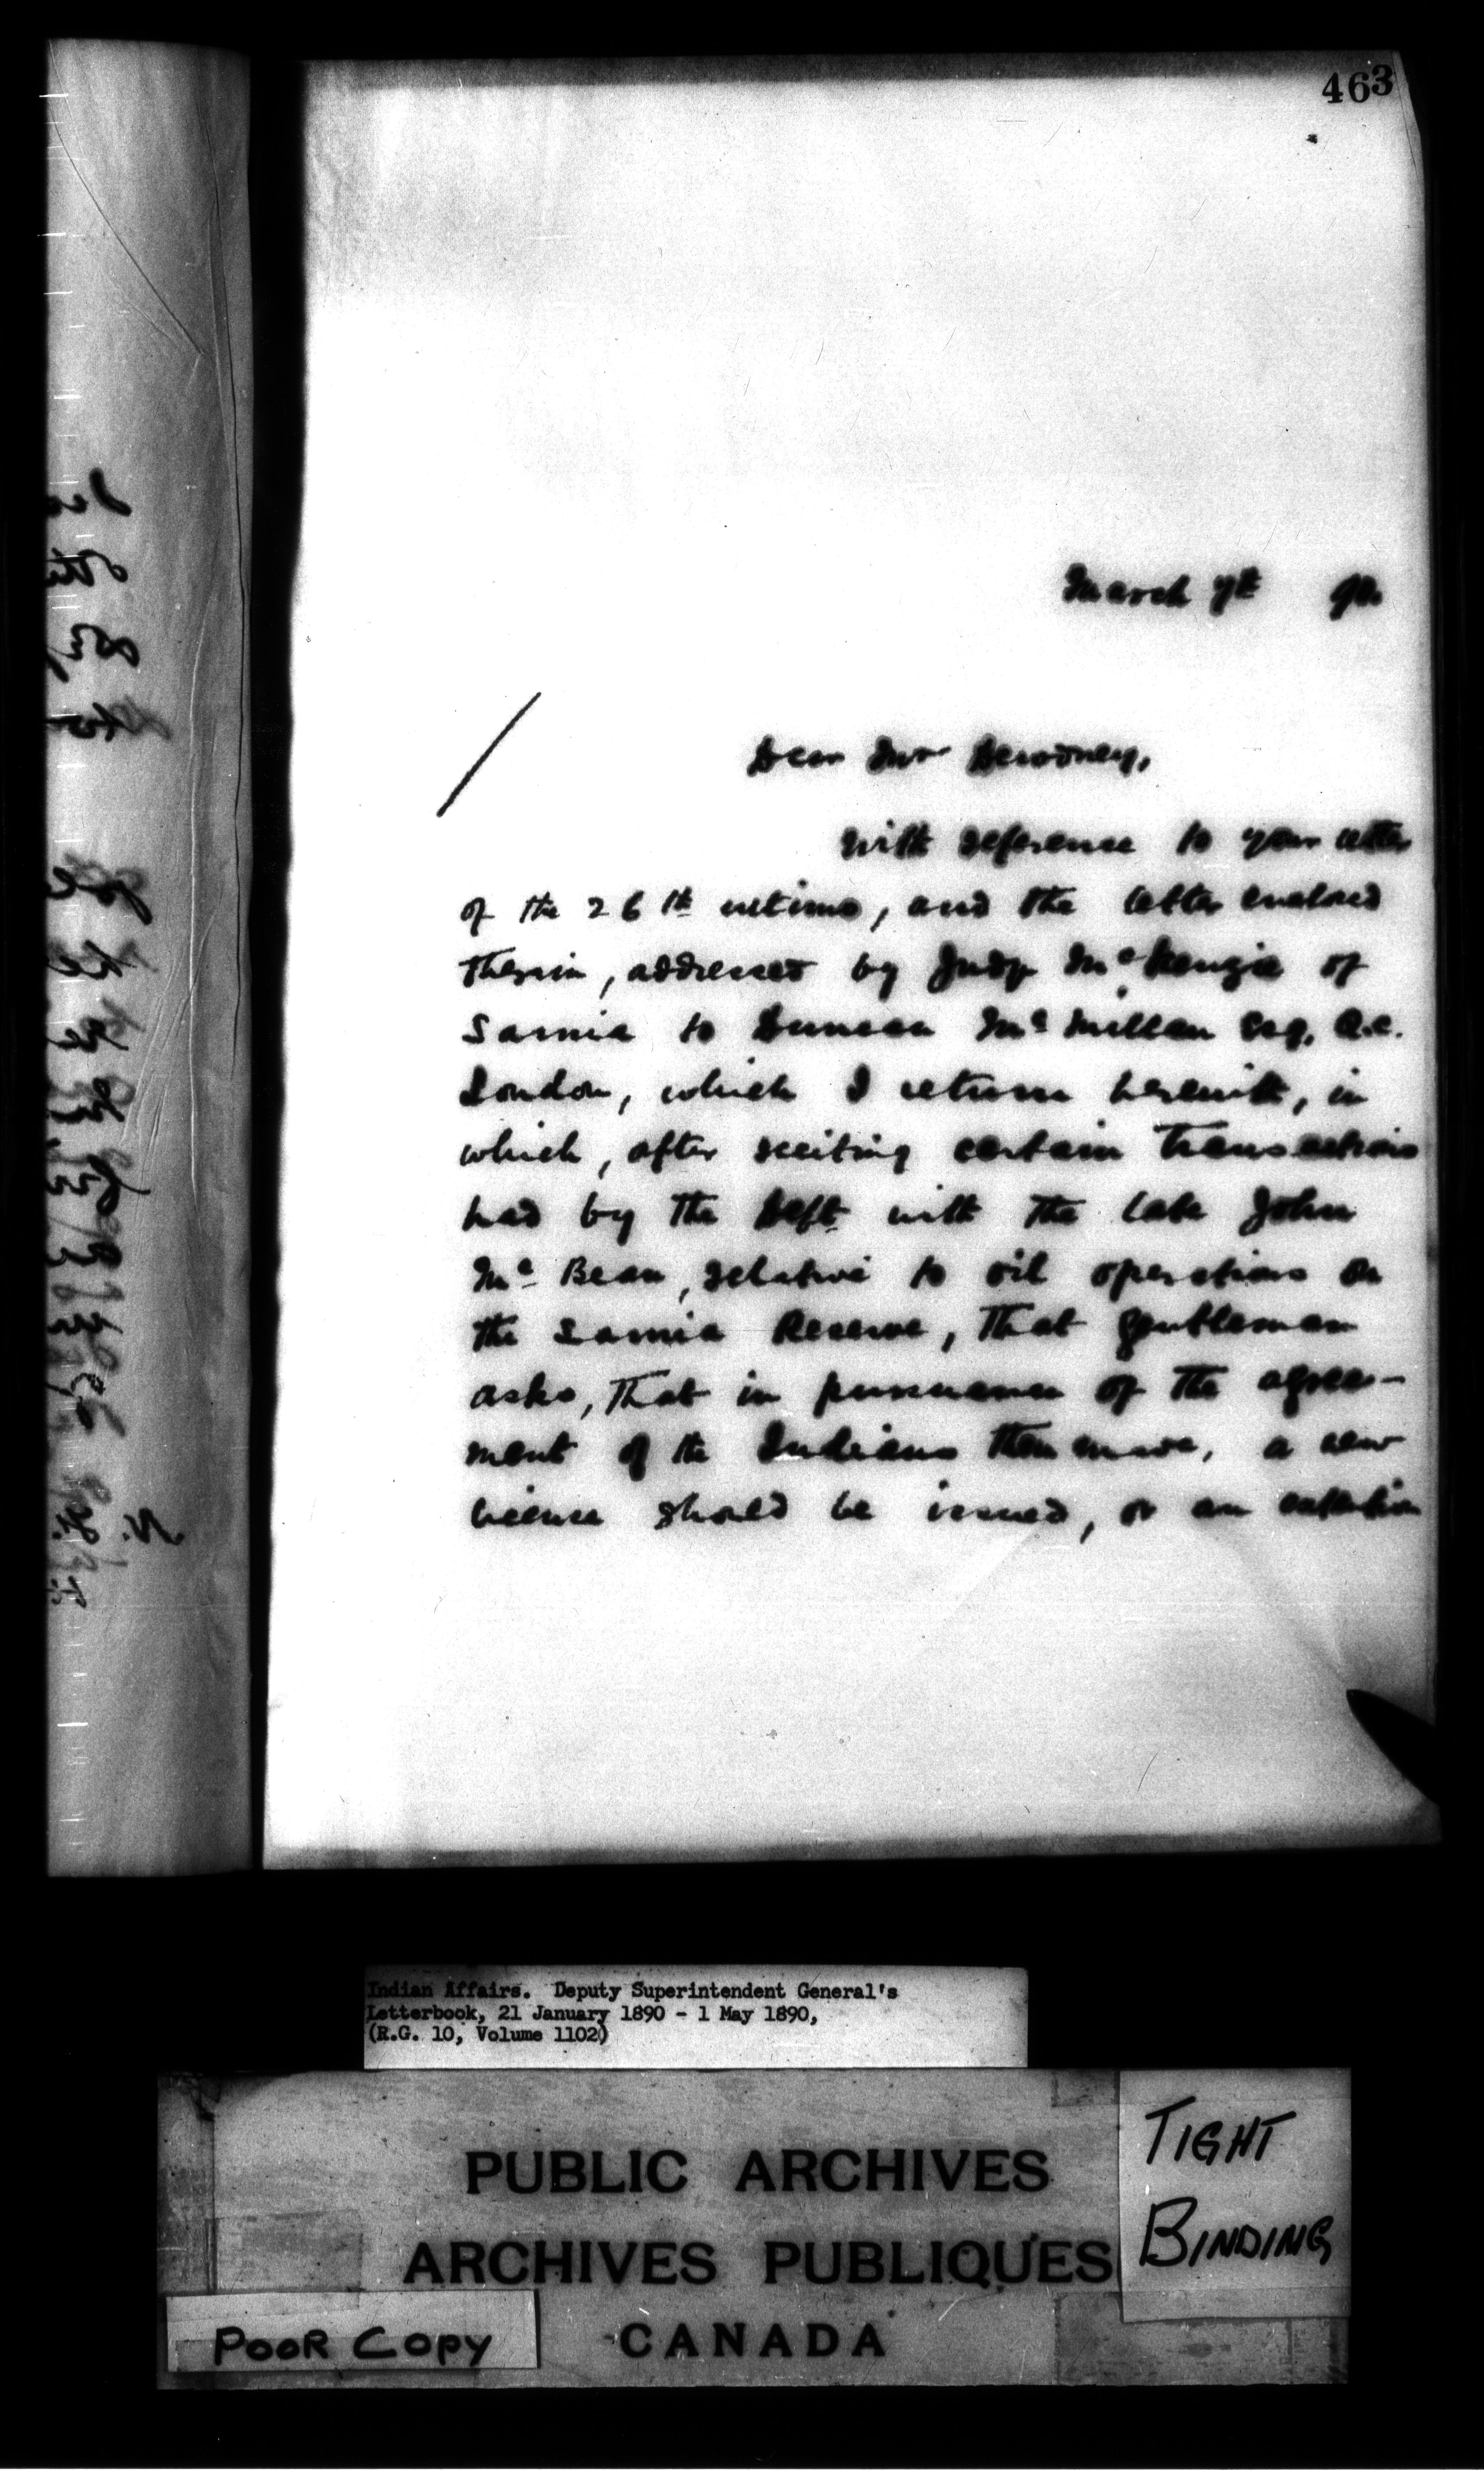 463
March 7th 90.
Dear Mr Dewdney,
With reference to your letter
of the 26th ultimo, and the letter enclosed
therein, addressed by Judge McKenzie of
Sarnia to Duncan McMillan Esq. Q.C.
London, which I return herewith, in
which, after reciting certain transactions
had by the Dept. with the late John
McBean, relative to oil operations on
the Sarnia Reserve, that gentleman
asks, that in pursuance of the agree-
ment of the Indians a new
license should be issued, or an extension
Indian Affairs. Deputy Superintendent General's
Letterbook, 21 January 1890 - 1 May 1890,
(R.G. 10, Volume 1102)
PUBLIC ARCHIVES
ARCHIVES PUBLIQUES
CANADA
TIGHT
BINDING
POOR COPY